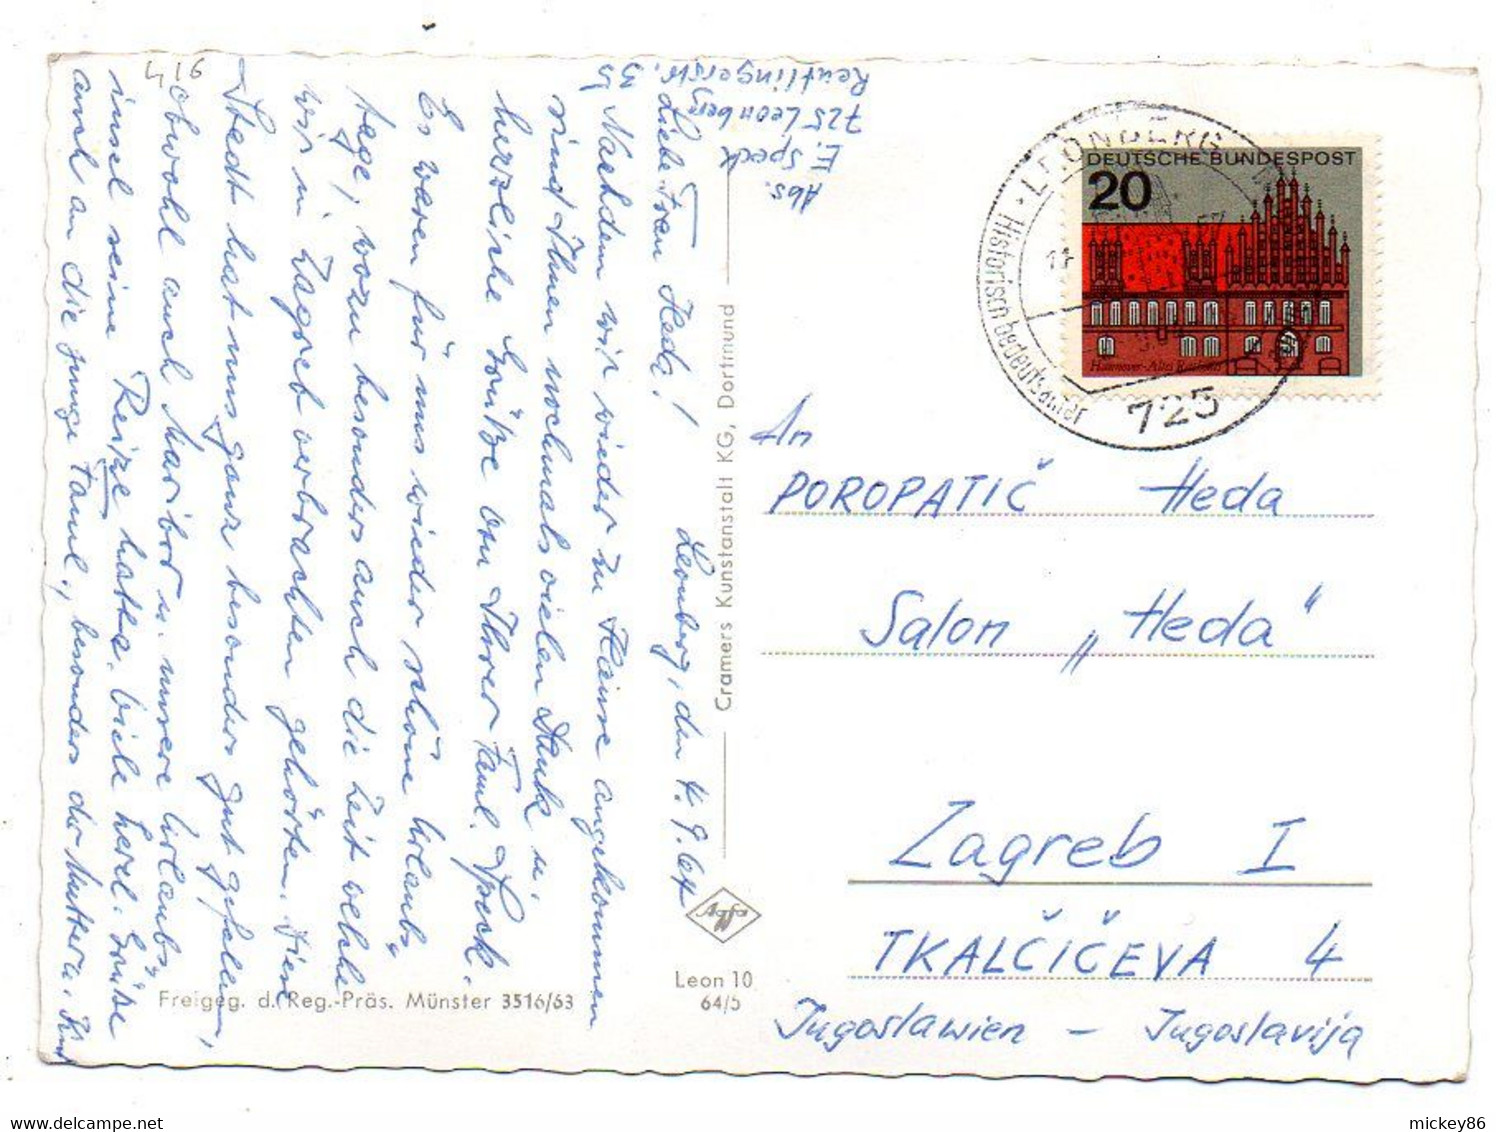 Abs.
E. Speck
725 Leonberg
Reutlingerstr. 55
Leonberg, den 11.9.64
Liebe Frau Heda!
Nachdem wir wieder zu Hause angekommen
sind Ihnen nochmals vielen Dank u.
herzliche Grüße von Ihrer Faml. Speck.
Es waren für uns wieder schöne Urlaubs
tage, wozu besonders auch die Zeit welche
wir in Zagreb verbrachten gehörten. Diese
Stadt hat uns ganz besonders gut gefallen,
obwohl auch Maribor u. unsere Urlaubs
insel seine Reize hatte. Viele herzl. Grüße
auch an die junge Faml., besonders der Mutter u.
416
Cramers Kunstanstalt KG, Dortmund
Agfa
Leon 10
64/5
Freigeg. d. Reg.-Präs. Münster 3516/63
DEUTSCHE BUNDESPOST
20
Hannover-Altes Rathaus
LEONBERG
Historisch bedeutsamer
725
An
POROPATIČ Heda
Salon „Heda"
Zagreb I
TKALČIČEVA 4
Jugoslawien - Jugoslavija
mickey86